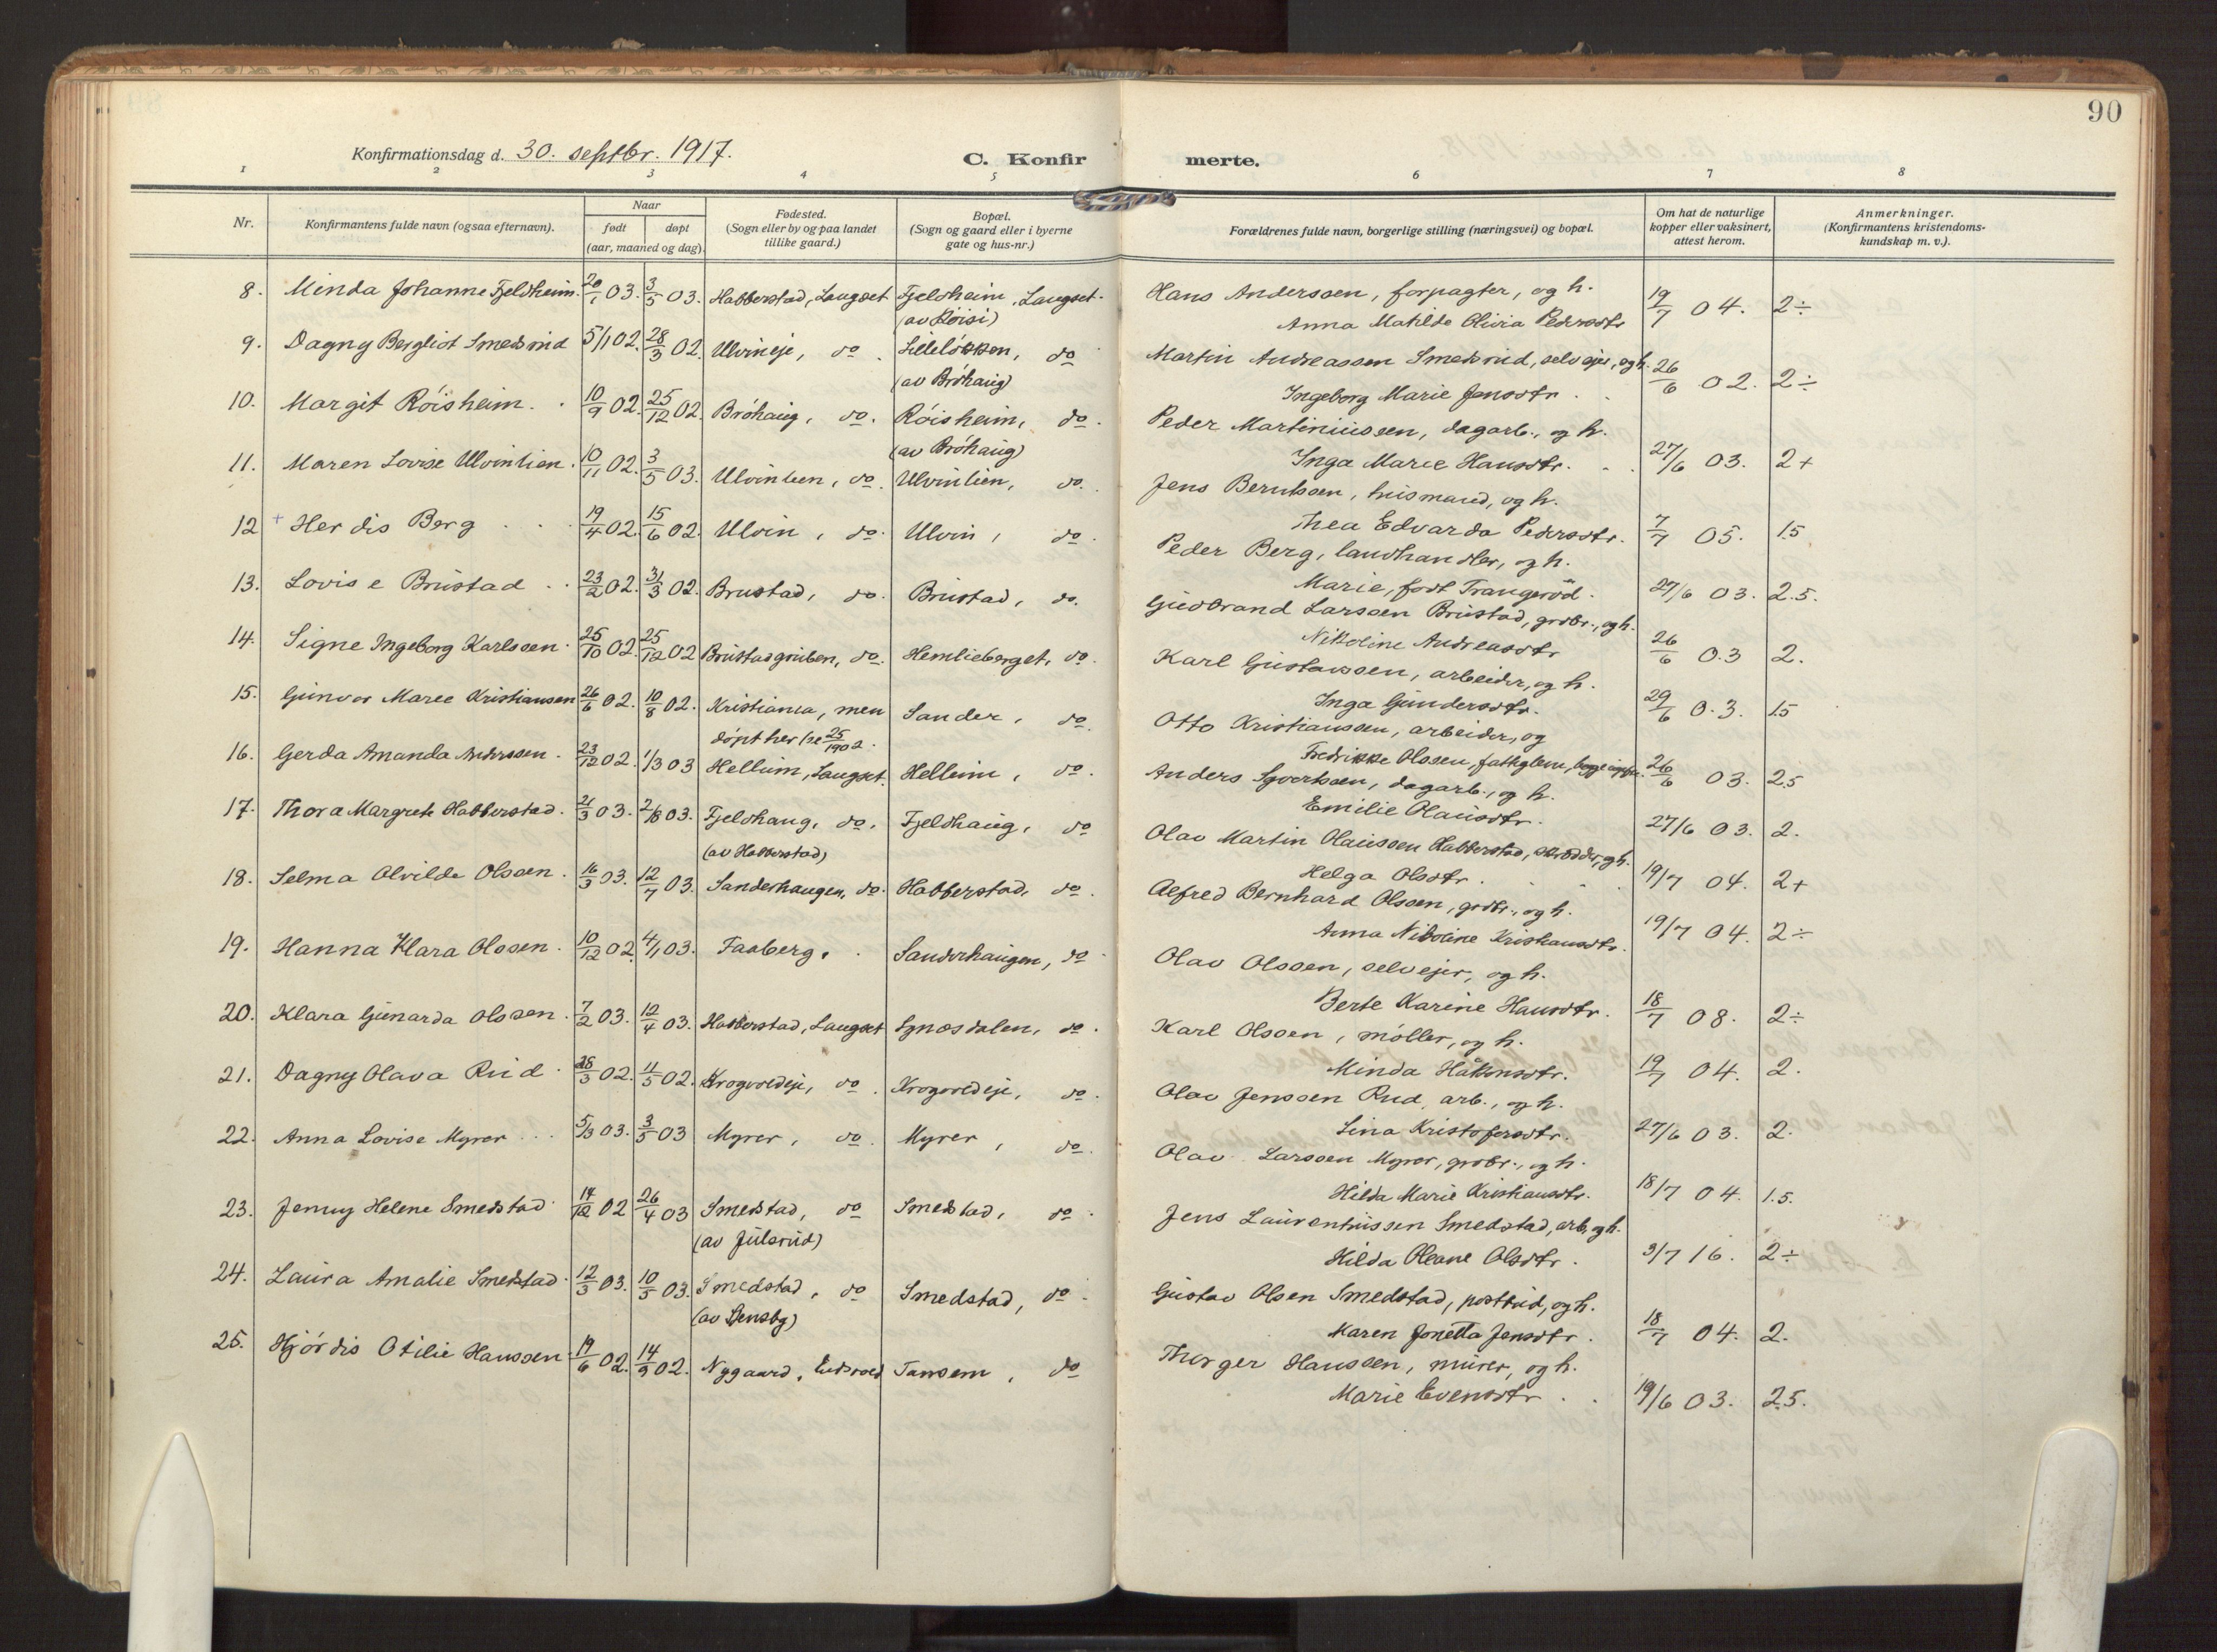 90
Konfirmationsdag d. 30. septbr. 1917.
C. Konfirmerte.
1 2 3 4 5 6 7 8
Nr.
Konfirmantens fulde navn (ogsaa efternavn).
Naar
født døpt
(aar, maaned og dag).
Fødested.
(Sogn eller by og paa landet
tillike gaard.)
Bopæl.
(Sogn og gaard eller i byerne
gate og hus-nr.)
Forældrenes fulde navn, borgerlige stilling (næringsvei) og bopæl.
Om hat de naturlige
kopper eller vaksinert,
attest herom.
Anmerkninger.
(Konfirmantens kristendoms-
kundskap m. v.).
8. Minda Johanne Fjeldheim. 20/1 03. 3/5 03. Habberstad, Langset Fjeldheim, Langset. Hans Anderssen, forpagter, og h.
(av Röisi) Anna Matilde Olivia Pedersdtr 19/7 04. 2÷
9. Dagny Bergliot Smedsrud 5/1 02. 28/3 02. Ulvineje, do. Lillelökken, do Martin Andreassen Smedsrud, selvejer, og h.
(av Bröhaug) Ingeborg Marie Jensdtr. 26/6 02. 2÷
10. Margit Röisheim. 10/9 02. 25/12 02. Bröhaug, do. Röisheim, do. Peder Martiniussen, dagarb., og h.
(av Bröhaug) Inga Marie Hansdtr. 27/6 03. 2+
11. Maren Lovise Ulvinlien. 10/11 02. 3/5 03. Ulvinlien, do. Ulvinlien, do. Jens Berntssen, husmand, og h.
Thea Edvarda Pedersdtr. 7/7 05. 1.5
12 + Herdis Berg 19/4 02. 15/6 02. Ulvin, do. Ulvin, do. Peder Berg, landhandler, og h.
Marie, født Trangeröd. 27/6 03. 2.5.
13. Lovise Brustad 23/2 02. 31/3 02. Brustad, do. Brustad, do. Gudbrand Larssen Brustad, grdbr., og h.
Nikoline Andreasdtr 26/6 03 2.
14. Signe Ingeborg Karlssen. 25/10 02. 25/12 02 Brustadgruben, do. Hemlieberget, do. Karl Gustavssen, arbeider, og h.
Inga Gundersdtr. 29/6 03. 1.5
15. Gunvor Marie Kristiansen 26/6 02. 10/8 02. Kristiania, men Sander, do. Otto Kristianssen, arbeider, og
døpt her 25/ 1902. Fredrikke Olssen, 26/6 03. 2.5
16. Gerda Amanda Anderssen. 23/12 02. 1/3 03 Hellum, Langset. Hellum, do. Anders Syvertsen, dagarb., og h.
Emilie Olausdtr. 27/6 03. 2.
17. Thora Margrete Habberstad. 21/3 03. 2/8 03. Fjeldhaug, do. Fjeldhaug, do Olav Martin Olaussen Habberstad, skrædder, og h.
(av Habberstad) Helga Olsdtr. 19/7 04. 2+
18. Selma Alvilde Olssen. 16/3 03. 12/7 03. Sanderhaugen, do. Habberstad, do. Alfred Bernhard Olssen, grdbr., og h.
Anna Nikoline Kristiansdtr. 19/7 04. 2÷
19. Hanna Klara Olssen. 10/12 02. 4/1 03. Faaberg. Sanderhaugen, do Olav Olssen, selvejer, og h.
Berte Karine Hansdtr. 18/7 08. 2÷
20. Klara Gunarda Olssen. 7/2 03. 12/4 03. Habberstad, Langset Synesdalen, do. Karl Olssen, möller, og h.
Minda Håkensdtr. 19/7 04. 2.
21. Dagny Olava Rud. 28/3 02. 11/5 02. Krogvoldeje, do. Krogvoldeje, do. Olav Jenssen Rud, arb., og h.
Lina Kristofersdtr. 27/6 03. 2.
22. Anna Lovise Myrer 5/3 03. 3/5 03 Myrer, do. Myrer, do. Olav Larssen Myrer, grdbr., og h.
Hilda Marie Kristiansdtr. 18/7 04. 1.5.
23. Jenny Helene Smedstad 14/12 02 26/4 03 Smedstad, do Smedstad, do. Jens Laurentiussen Smedstad, arb, og h.
(av Julsrud) Hilda Oleane Olsdtr. 3/7 16. 2÷
24. Laura Amalie Smedstad. 12/3 03. 10/5 03. Smedstad, do Smedstad, do. Gustav Olsen Smedstad, postbud, og h.
(av Stensbg) Karen Jonetta Jensdtr. 18/7 04. 2.
25. Hjördis Otilie Hanssen 19/6 02. 14/9 02. Nygaard, Eidsvold Tansem, do Thorger Hanssen, murer, og h.
Marie Evensdtr. 19/6 03. 2.5.